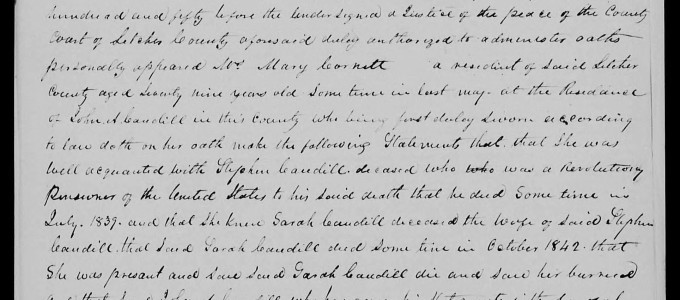 hundread and fifty before the undersigned a Justice of the peace of the County
Court of Letcher County aforesaid duley authorized to administer oaths
personally appeared Mrs Mary Cornett a resident of Said Letcher
County aged Seventy nine years old Some time in last may at the Residance
of John A. Caudill in this County who being first duley Sworn according
to law doth on her oath make the following Statements that. that She was
well acquanted with Stephen Caudill deceased who who was a Revolutiony
Pensioner of the United States to his Said death that he died Some time in
July. 1839. and that She knew Sarah Caudill deceased the wife of Said Stephen
Caudill. that Said Sarah Caudill died Some time in October 1842. that
She was presant and saw Said Sarah Caudill die and saw her burried
and that